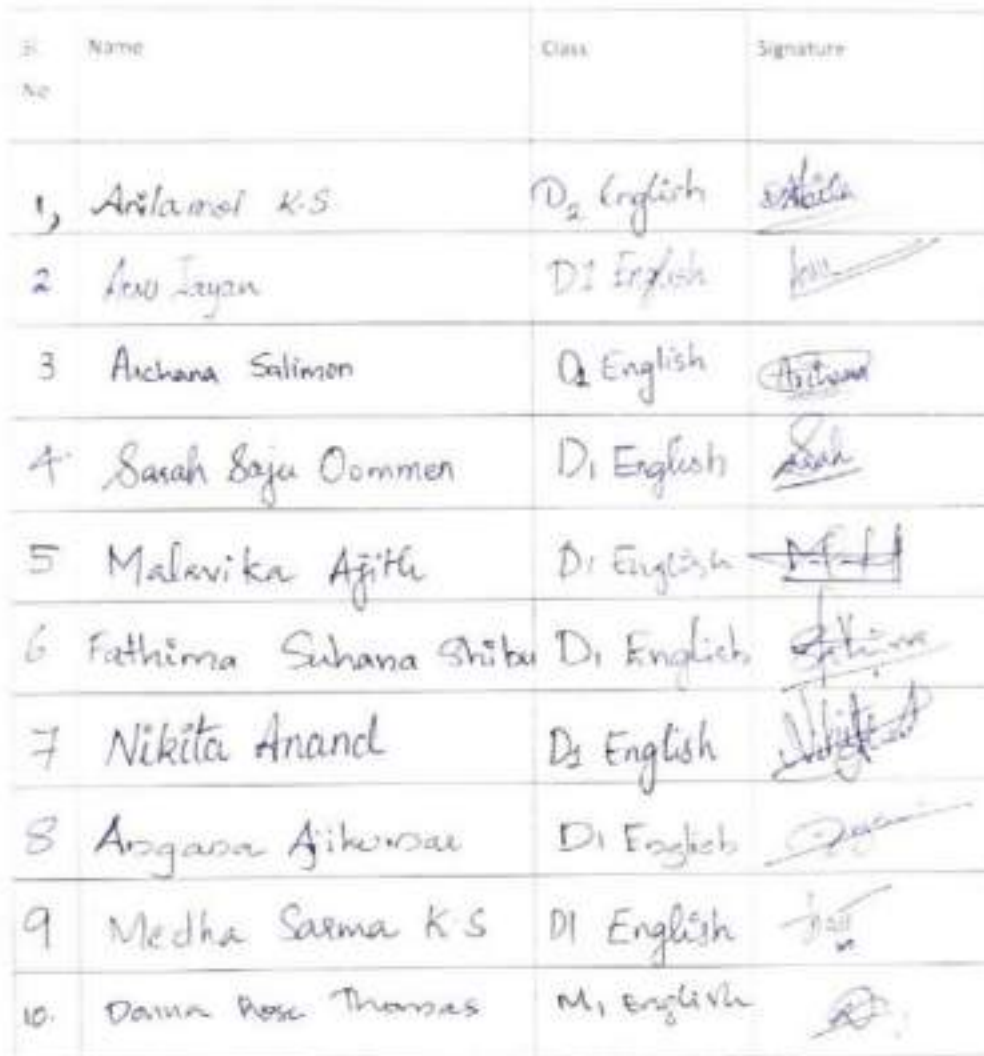 Sl. Name Class Signature
No
1, Anilamol K.S. D2 English
2 Anu Jayan D1 English Anu
3 Archana Salimon D1 English Archana
4 Sarah Saju Oommen D1 English Sarah
5 Malavika Ajith D1 English
6 Fathima Suhana Shibu D1 English Fathima
7 Nikita Anand D1 English Nikita
8 Angana Ajikumar D1 English
9 Medha Sarma K S D1 English
10. Rose Thomas M1 English